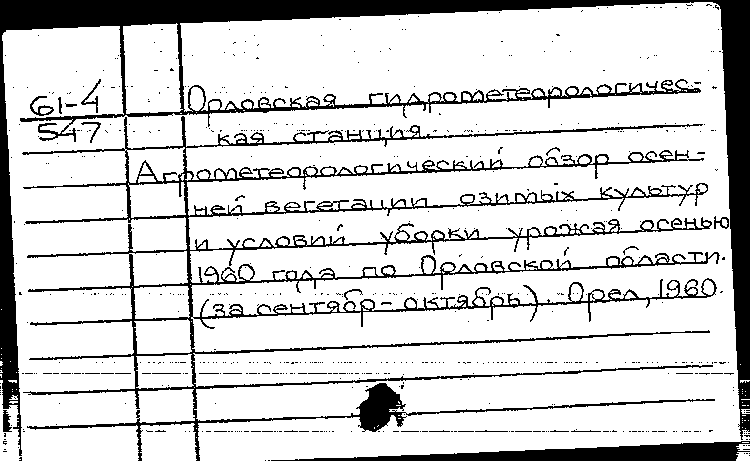 61-4
547
Орловская гидрометеорологичес-
кая станция.
Агрометеорологический обзор осен-
ней вегетации озимых культур
и условий уборки урожая осенью
1960 года по Орловской области.
(за сентябр-октябрь).-Орел, 1960.